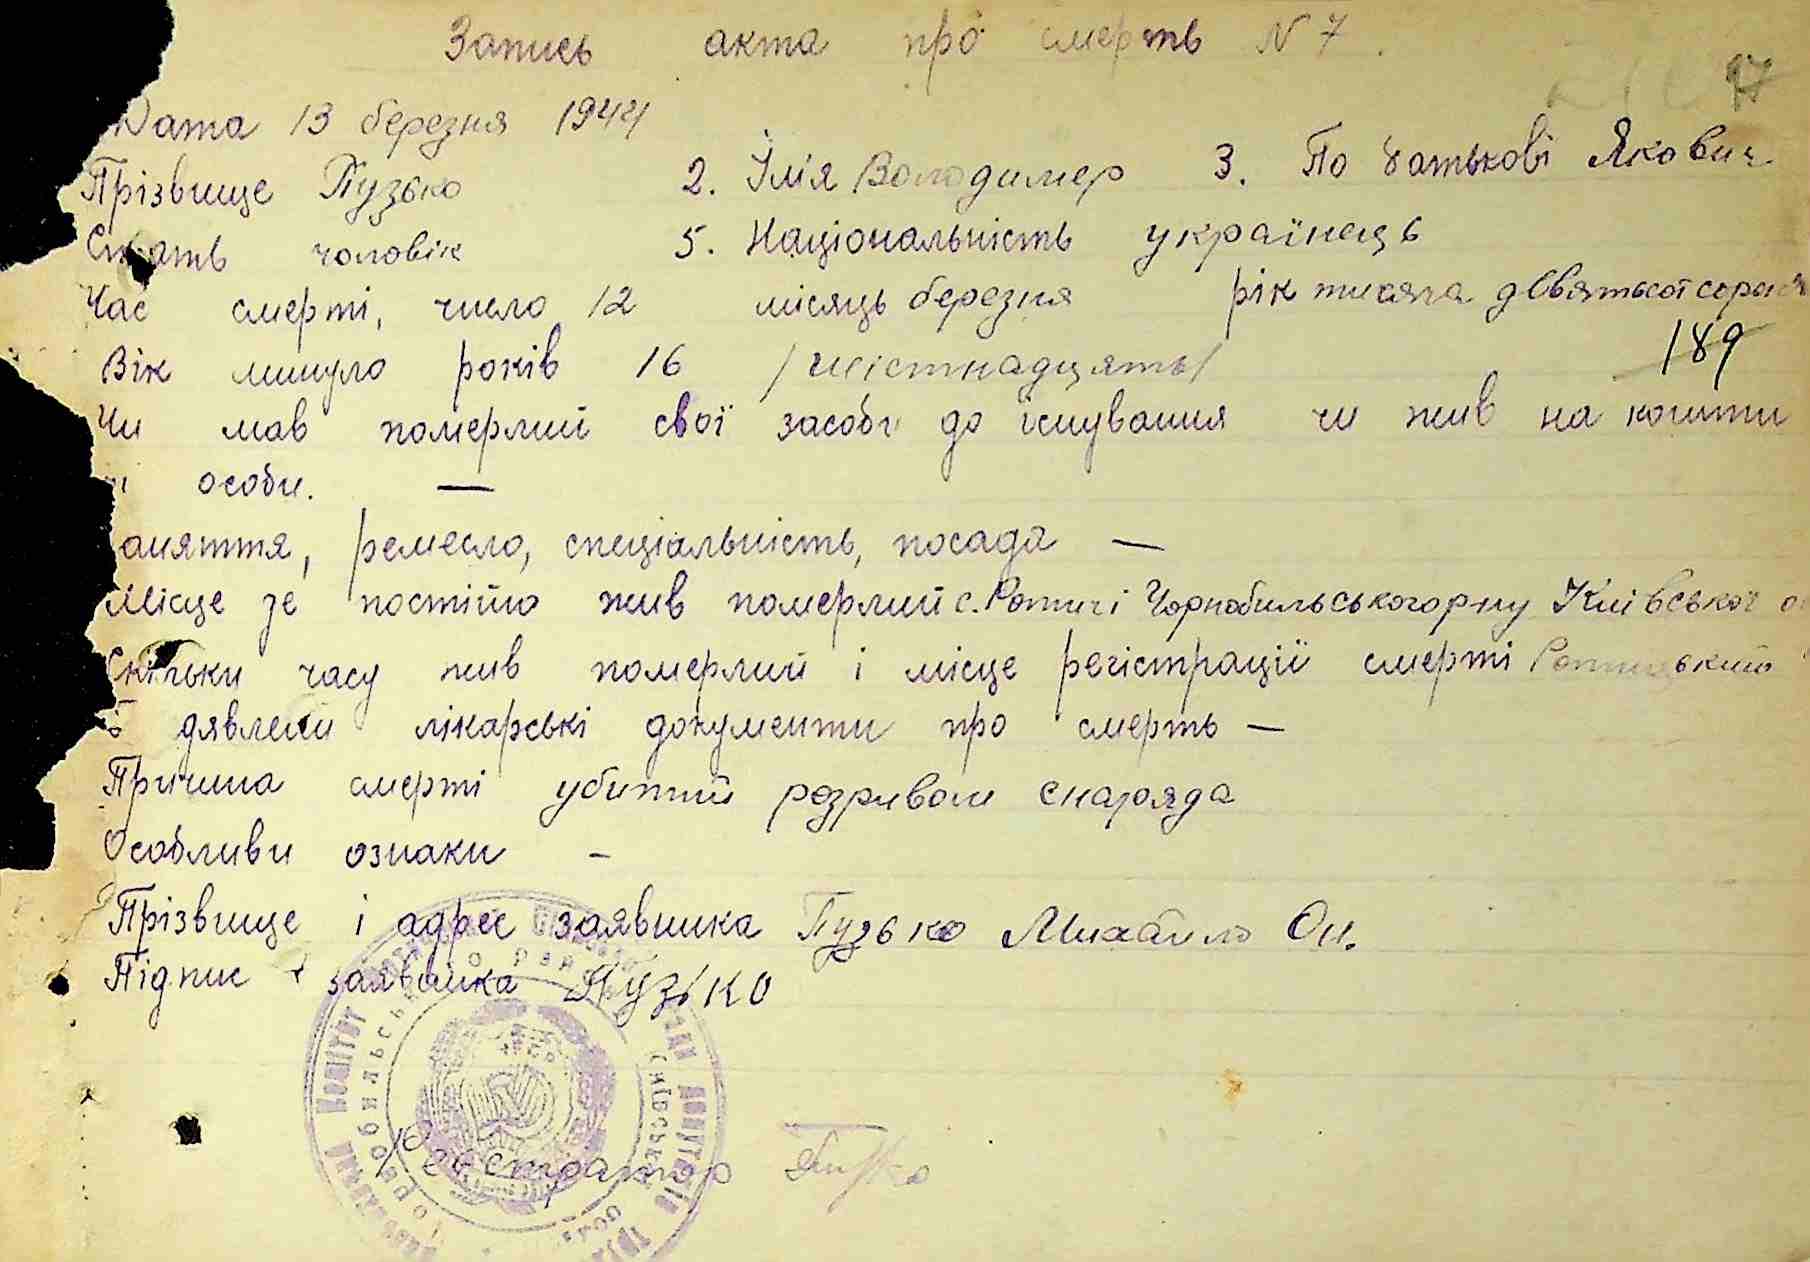 Запись акта про смерть N 7
97
Дата 13 березня 1944
Прізвище Пузько 2. Імʼя Володимер 3. По батькові Якович
Стать чоловік 5. Національність українець
Час смерті, число 12 місяць березня рік тисяча девятьсот сорок
189
Вік минуло років 16 /шістнадцять/
Чи мав померлий свої засоби до існування чи жив на кошти
особи. —
аняття, ремесло, спеціальність, посада —
Місце де постійно жив померлий с. Ротичі Чорнобильського рну Київської о
Скільки часу жив померлий і місце регістрації смерті
дявлени лікарські документи про смерть —
Причина смерті убитий розривом снаряда
Особливи ознаки –
Прізвище і адрес заявника Пузько Михайло Он.
Підпис заявника Пузько
Регістратор